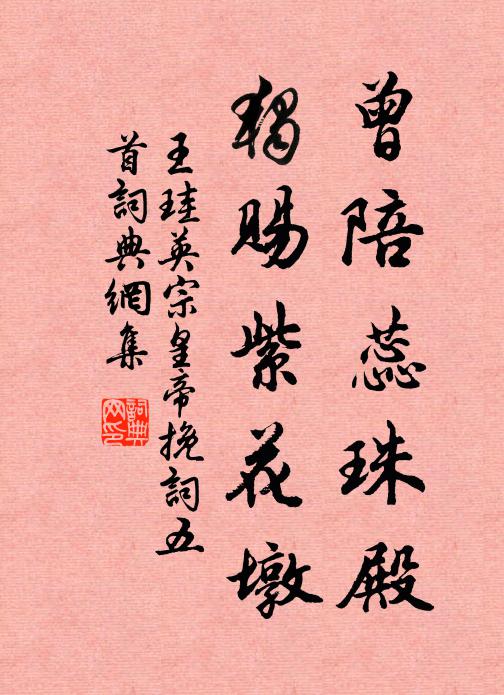 曾陪蕊珠殿
独賜紫花墩
王珪英宗皇帝挽詞五
首詞典網集
詞典
网印